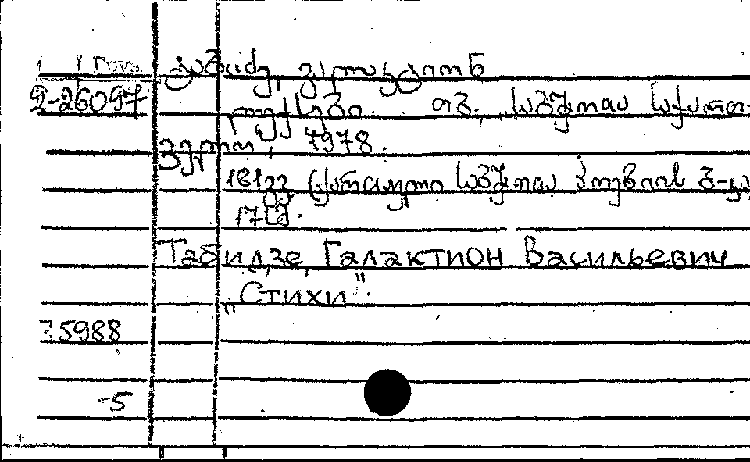 ტაბიძე, გალაკტიონ
2-26097
ლექსები. თბ., საბჭოთა საქართ-
ველო, 1978.
181გვ. (ქართული საბჭოთა პოეზიის ბ-კა
17სმ.
Табидзе, Галактион Васильевич
„Стихи".
75988
-5